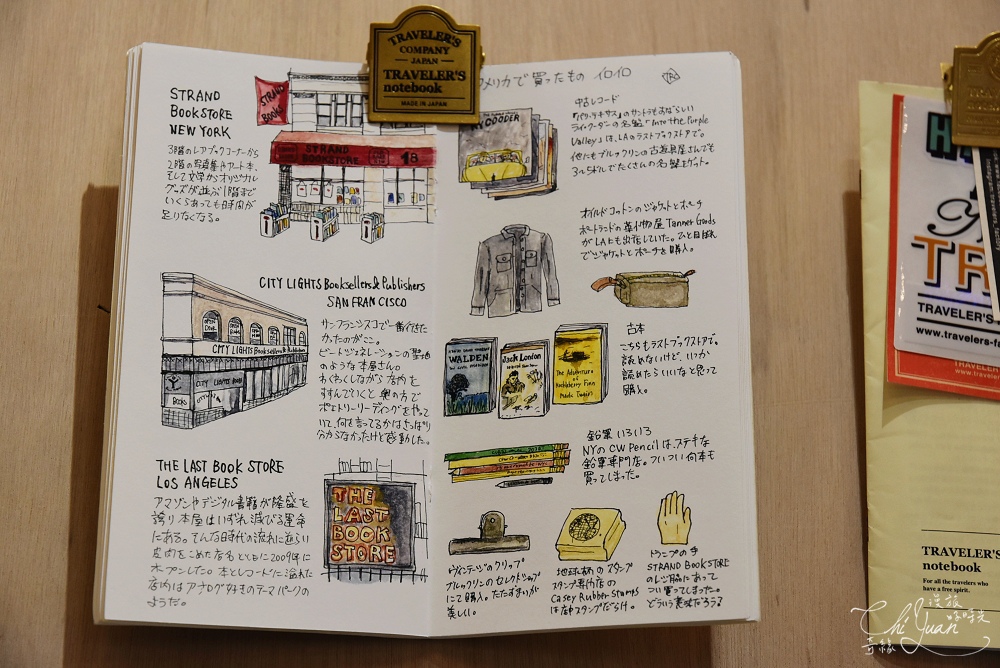 TRAVELER'S
COMPANY
JAPAN
TRAVELER'S
notebook
MADE IN JAPAN
STRAND
BOOKSTORE
NEW YORK
3階のレアブックコーナーから
2階の写真集やアート本、
そして文学からオリジナル
グッズが並ぶ1階まで
いくらあっても時間が
足りなくなる。
STRAND
BOOKS
STRAND
BOOKSTORE
18
CITY LIGHTS Booksellers & Publishers
SAN FRANCISCO
サンフランシスコで一番行きた
かったのがここ。
ビートジェネレーションの聖地
のような本屋さん。
わくわくしながら店内を
すすんでいくと奥の方で
ポエトリーリーディングをやって
いて、何を言ってるかはさっぱり
分からなかったけど感動した。
CITY LIGHTS Booksellers & Publishers
CITY LIGHTS BOOKS
BOOKS
THE LAST BOOK STORE
LOS ANGELES
アマゾンやデジタル書籍が隆盛を
誇り本屋はいずれ滅びる運命
にある。そんな時代の流れに逆らい
皮肉をこめた店名とともに2009年に
オープンした。本とレコードに溢れた
店内はアナログ好きのテーマパークの
ようだ。
THE
LAST
BOOK
STORE
メリカで買ったもの イロイロ
RY COODER
中古レコード
「パリ、テキサス」のサントラもすばらしい
ライ・クーダーの名盤「Into the Purple
Valley」は、LAのラストブックストアで。
他にもブルックリンの古道具屋さんでも
3ドルでたくさんの名盤をゲット。
オイルドコットンのジャケットとポーチ
ポートランドの革小物屋 Tanner Goods
がLAにも出店していた。ひと目ぼれ
でジャケットとポーチを購入。
WALDEN
Jack London
The Adventures of
Huckleberry Finn
Mark Twain
古本
こちらもラストブックストアで。
読めないけど、いつか
読めたらいいなと思って
購入。
鉛筆 いろいろ
NYのCW Pencilは、ステキな
鉛筆専門店。ついつい何本も
買ってしまった。
ヴィンテージのクリップ
ブルックリンのセレクトショップ
にて購入。たたずまいが
美しい。
地球柄のスタンプ
スタンプ専門店の
Casey Rubber Stamps
は店中スタンプだらけ。
トランプの手
STRAND BOOKSTORE
のレジ脇にあって
つい買ってしまった。
どういう意味だろう
TR
TRAVELER'S
www.travelers-fa
TRAVELER'S
notebook
For all the travelers who
have a free spirit.
Chi Yuan
奇緣